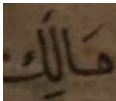 مَالِكَ